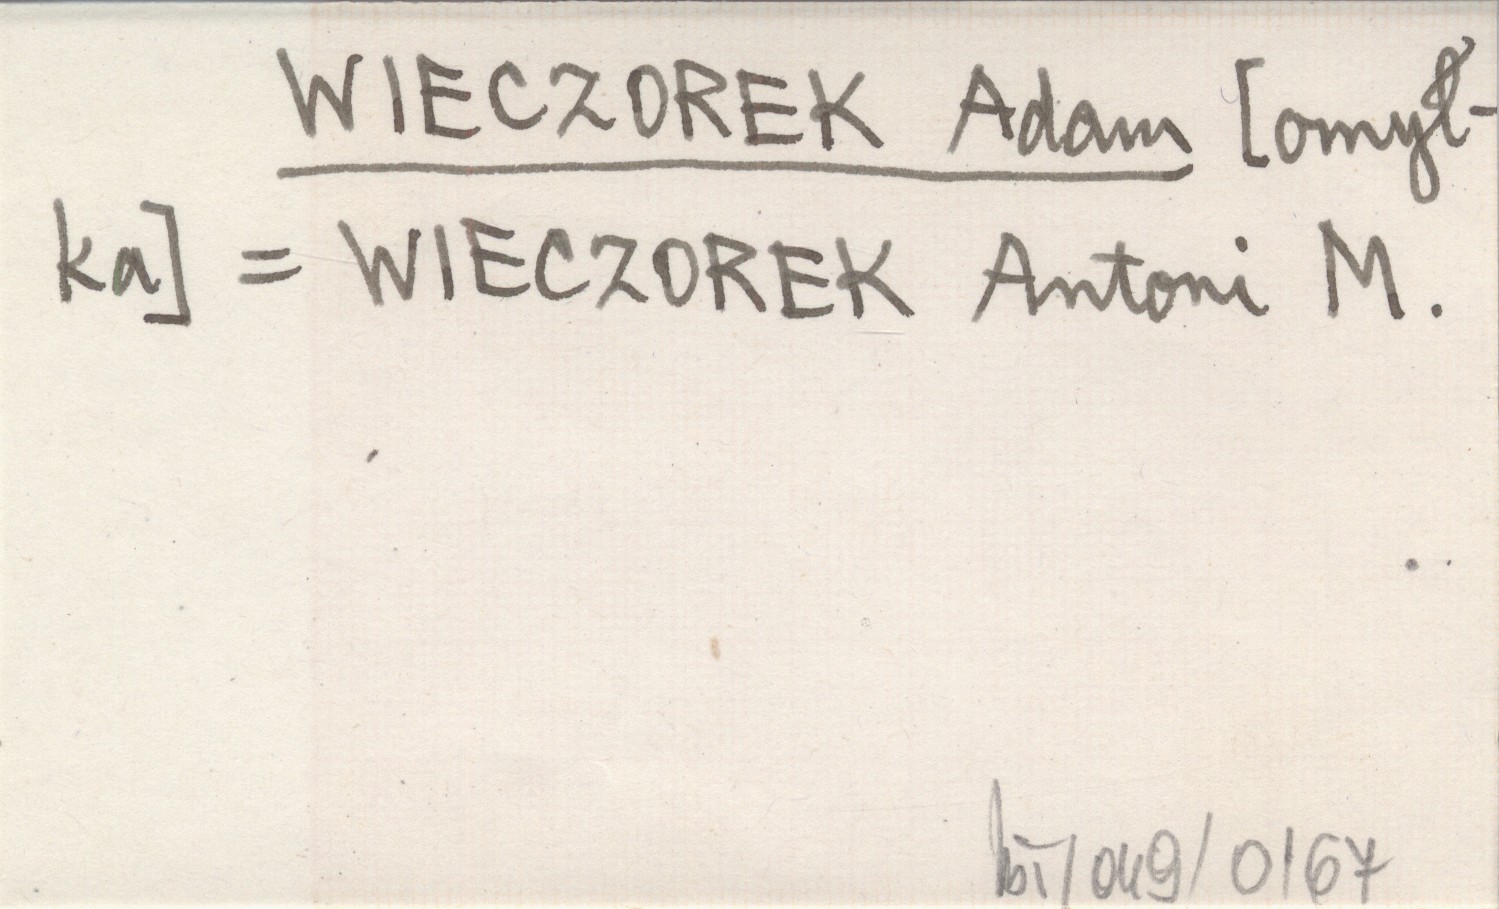 WIECZOREK Adam [omył-
ka] = WIECZOREK Antoni M.
/049/0167